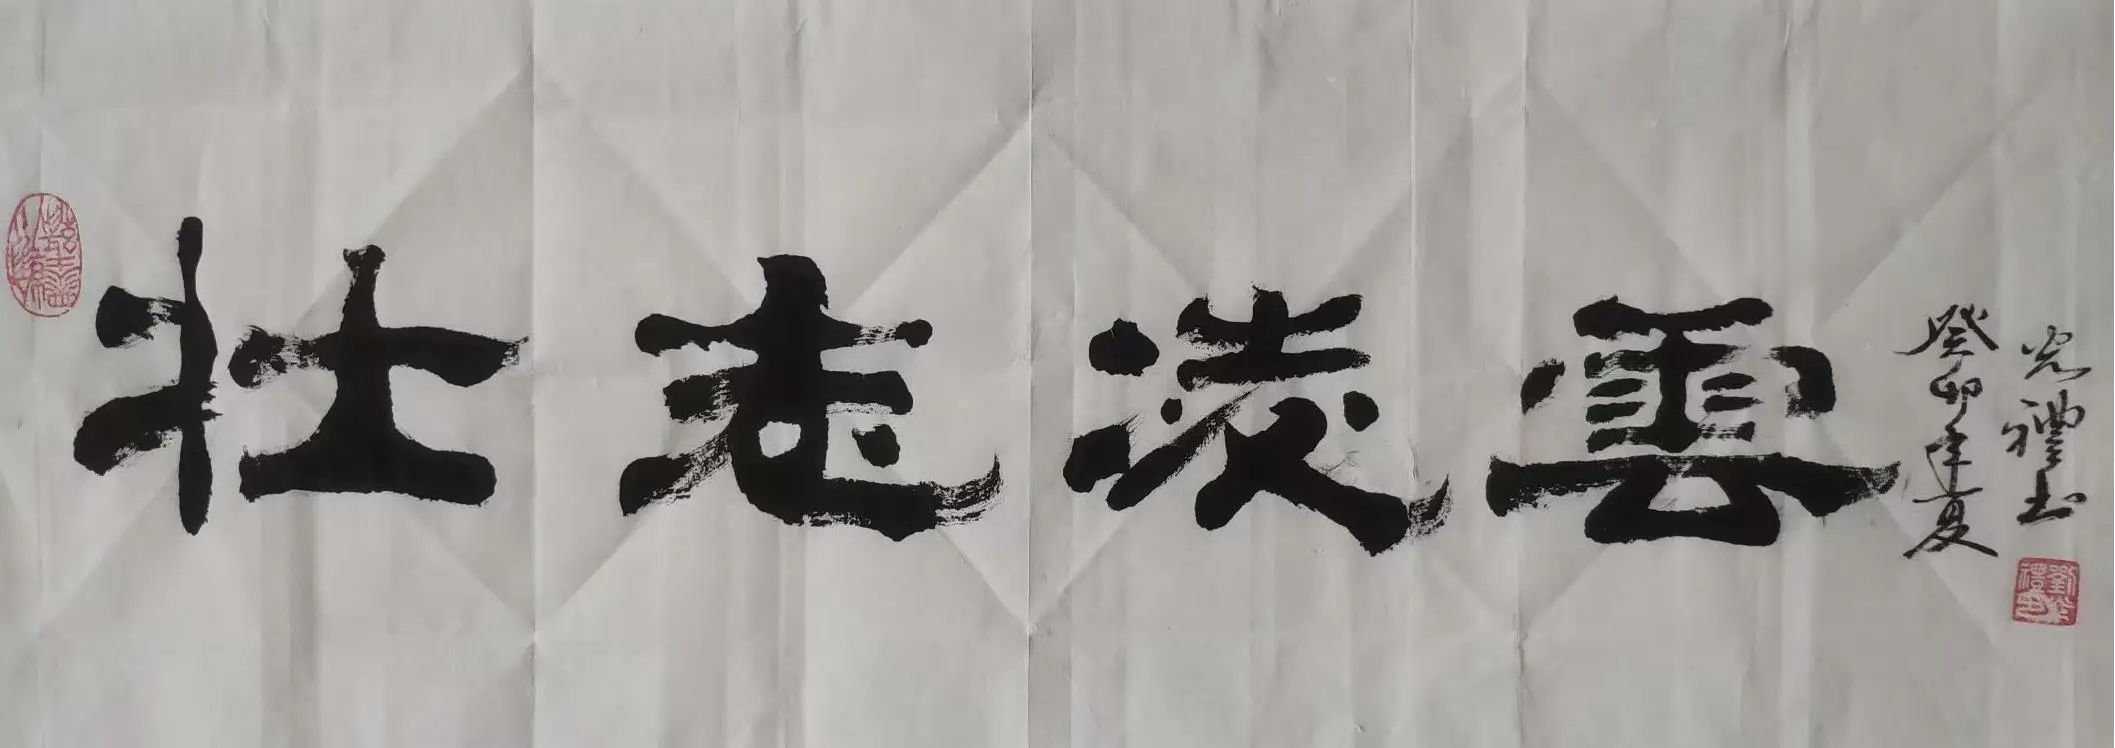 壮志凌雲
癸卯年夏
光禮书
劉光禮印